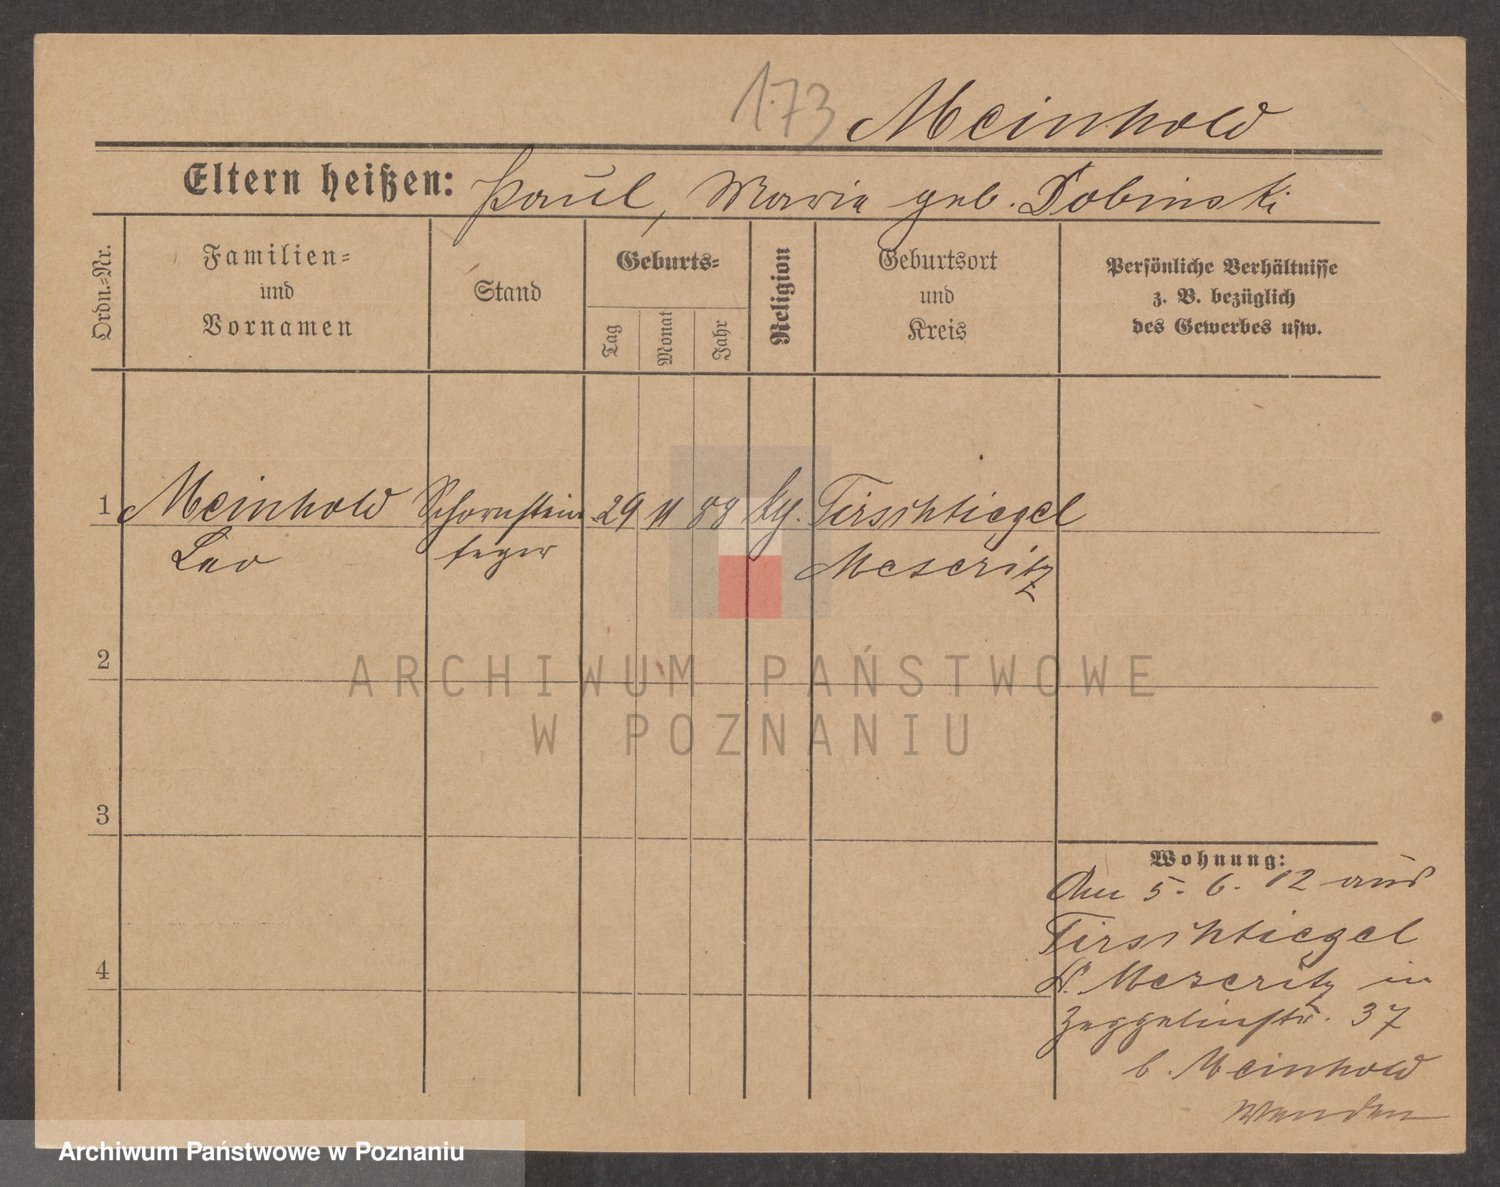 173 Meinhold
Eltern heißen: Paul, Maria geb. Dobinski
Ordn.=Nr.
Familien=
und
Vornamen
Stand
Geburts=
Tag
Monat
Jahr
Religion
Geburtsort
und
Kreis
Persönliche Verhältnisse
z. B. bezüglich
des Gewerbes usw.
1 Meinhold Schornstein 29 11 88 kg. Tirschtiegel
Leo feger Meseritz
2
3
4
Wohnung:
Am 5. 6. 12 aus
Tirschtiegel
K. Meseritz in
Zeppelinstr. 37
b. Meinhold
Wenden
ARCHIWUM PAŃSTWOWE
W POZNANIU
Archiwum Państwowe w Poznaniu